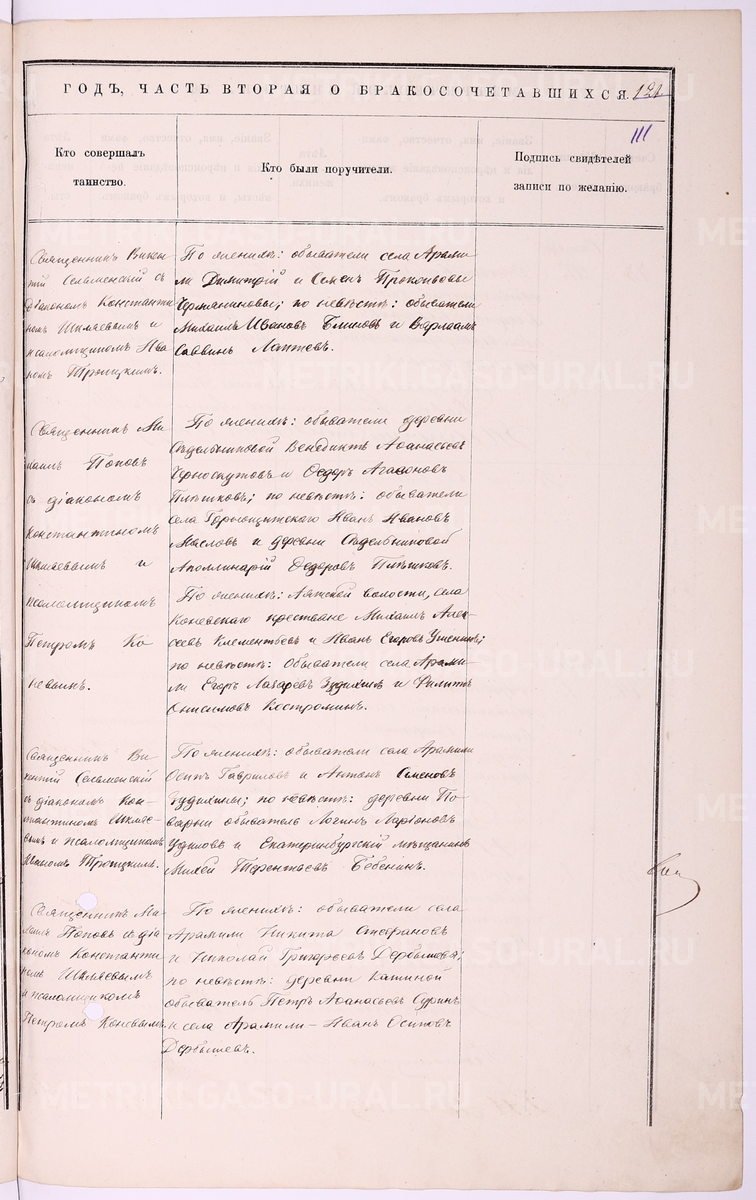 ГОДЪ, ЧАСТЬ ВТОРАЯ О БРАКОСОЧЕТАВШИХСЯ. 121.
III
Кто совершалъ
таинство.
Кто были поручители.
Подпись свидѣтелей
записи по желанію.
Священникъ Викен-
тій Сельменскій съ
діакономъ Константи
номъ Шиляевымъ и
псаломщикомъ Ива
номъ Троицкимъ.
По женихѣ: обыватели села Арами
ли Димитрій и Семенъ Прокопьевы
по невѣстѣ: обыватели
Михаилъ Ивановъ Блиновъ и Варлаамъ
Саввинъ Лаптевъ.
Священникъ Ми
хаилъ Поповъ
съ діакономъ
Константиномъ
Шиляевымъ и
псаломщикомъ
Петромъ Ко
невымъ.
По женихѣ: обыватели деревни
Сѣдельниковой Венедиктъ Аѳанасьевъ
Черноскутовъ и Ѳедоръ Агаѳоновъ
Плѣшковъ; по невѣстѣ: обыватели
села Горнощитскаго Иванъ Ивановъ
Масловъ и деревни Сѣдельниковой
Аполлинарій Ѳедоровъ Плѣшковъ.
По женихѣ: Аятской волости, села
Коневскаго крестьяне Михаилъ Алек-
сѣевъ Клементьевъ и Иванъ Егоровъ
по невѣстѣ: обыватели села Арами
ли Егоръ Лазаревъ и Филиппъ
Онисимовъ Костроминъ.
Священникъ Ви
кентій Сельменскій
съ діакономъ Кон-
стантиномъ Шиляе-
вымъ и псаломщикомъ
Иваномъ Троицкимъ.
По женихѣ: обыватели села Арамили
Осипъ Гавриловъ и Антонъ Семеновъ
по невѣстѣ: деревни По
варни обыватель Логинъ Ларіоновъ
и Екатеринбургскій мѣщанинъ
Михей Терентьевъ Бебенинъ.
Священникъ Ми
хаилъ Поповъ съ діа
кономъ Константи
номъ Шиляевымъ
и псаломщикомъ
Петромъ Коневымъ.
По женихѣ: обыватели села
Арамили Никита Стефановъ
и Николай Григорьевъ Дербышевы;
по невѣстѣ: деревни Катиной
обыватель Петръ Аѳанасьевъ Суринъ
и села Арамили – Иванъ Осиповъ
Дербышевъ.
METRIKI.GASO-URAL.RU